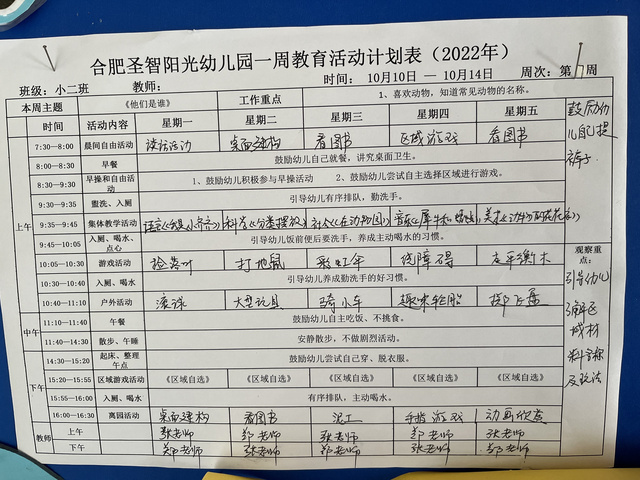 合肥圣智阳光幼儿园一周教育活动计划表（2022年）
班级：小二班 教师： 时间： 10月10日 — 10月14日 周次：第 周
本周主题 《他们是谁》 工作重点 1、喜欢动物，知道常见动物的名称。
时间 活动内容 星期一 星期二 星期三 星期四 星期五
鼓励幼
儿自己提
裤子
上午
7:30—8:00 晨间自由活动 谈话活动 桌面建构 看图书 区域游戏 看图书
8:00—8:30 早餐 鼓励幼儿自己就餐，讲究桌面卫生。
8:30—9:30 早操和自由活动 1、鼓励幼儿积极参与早操活动 2、鼓励幼儿尝试自主选择区域进行游戏。
9:30—9:35 盥洗、入厕 引导幼儿有序排队，勤洗手。
9:35—9:45 集体教学活动 科学《分类摆放》 社会《在动物园》
9:45—10:05 入厕、喝水、点心 引导幼儿饭前便后要洗手，养成主动喝水的习惯。
10:05—10:30 游戏活动 捡落叶 打地鼠 彩虹伞 绕障碍 走平衡木
10:30—10:40 入厕、喝水 引导幼儿养成勤洗手的好习惯。
10:40—11:10 户外活动 滚球 大型玩具 骑小车 趣味轮胎 掷飞盘
观察重点：
引导幼儿
了解区
域材
料名称
及玩法
中午
11:10—11:40 午餐 鼓励幼儿自主吃饭、不挑食。
11:40—14:30 散步、午睡 安静散步，不做剧烈活动。
下午
14:30—15:20 起床、整理午点 鼓励幼儿尝试自己穿、脱衣服。
15:20—15:55 区域游戏活动 《区域自选》 《区域自选》 《区域自选》 《区域自选》 《区域自选》
15:55—16:00 入厕、喝水 有序排队，主动喝水。
16:00—16:30 离园活动 桌面建构 看图书 泥工 手指游戏 动画欣赏
教师 上午 张老师 郑老师 张老师 郑老师 张老师
下午 郑老师 张老师 郑老师 张老师 郑老师